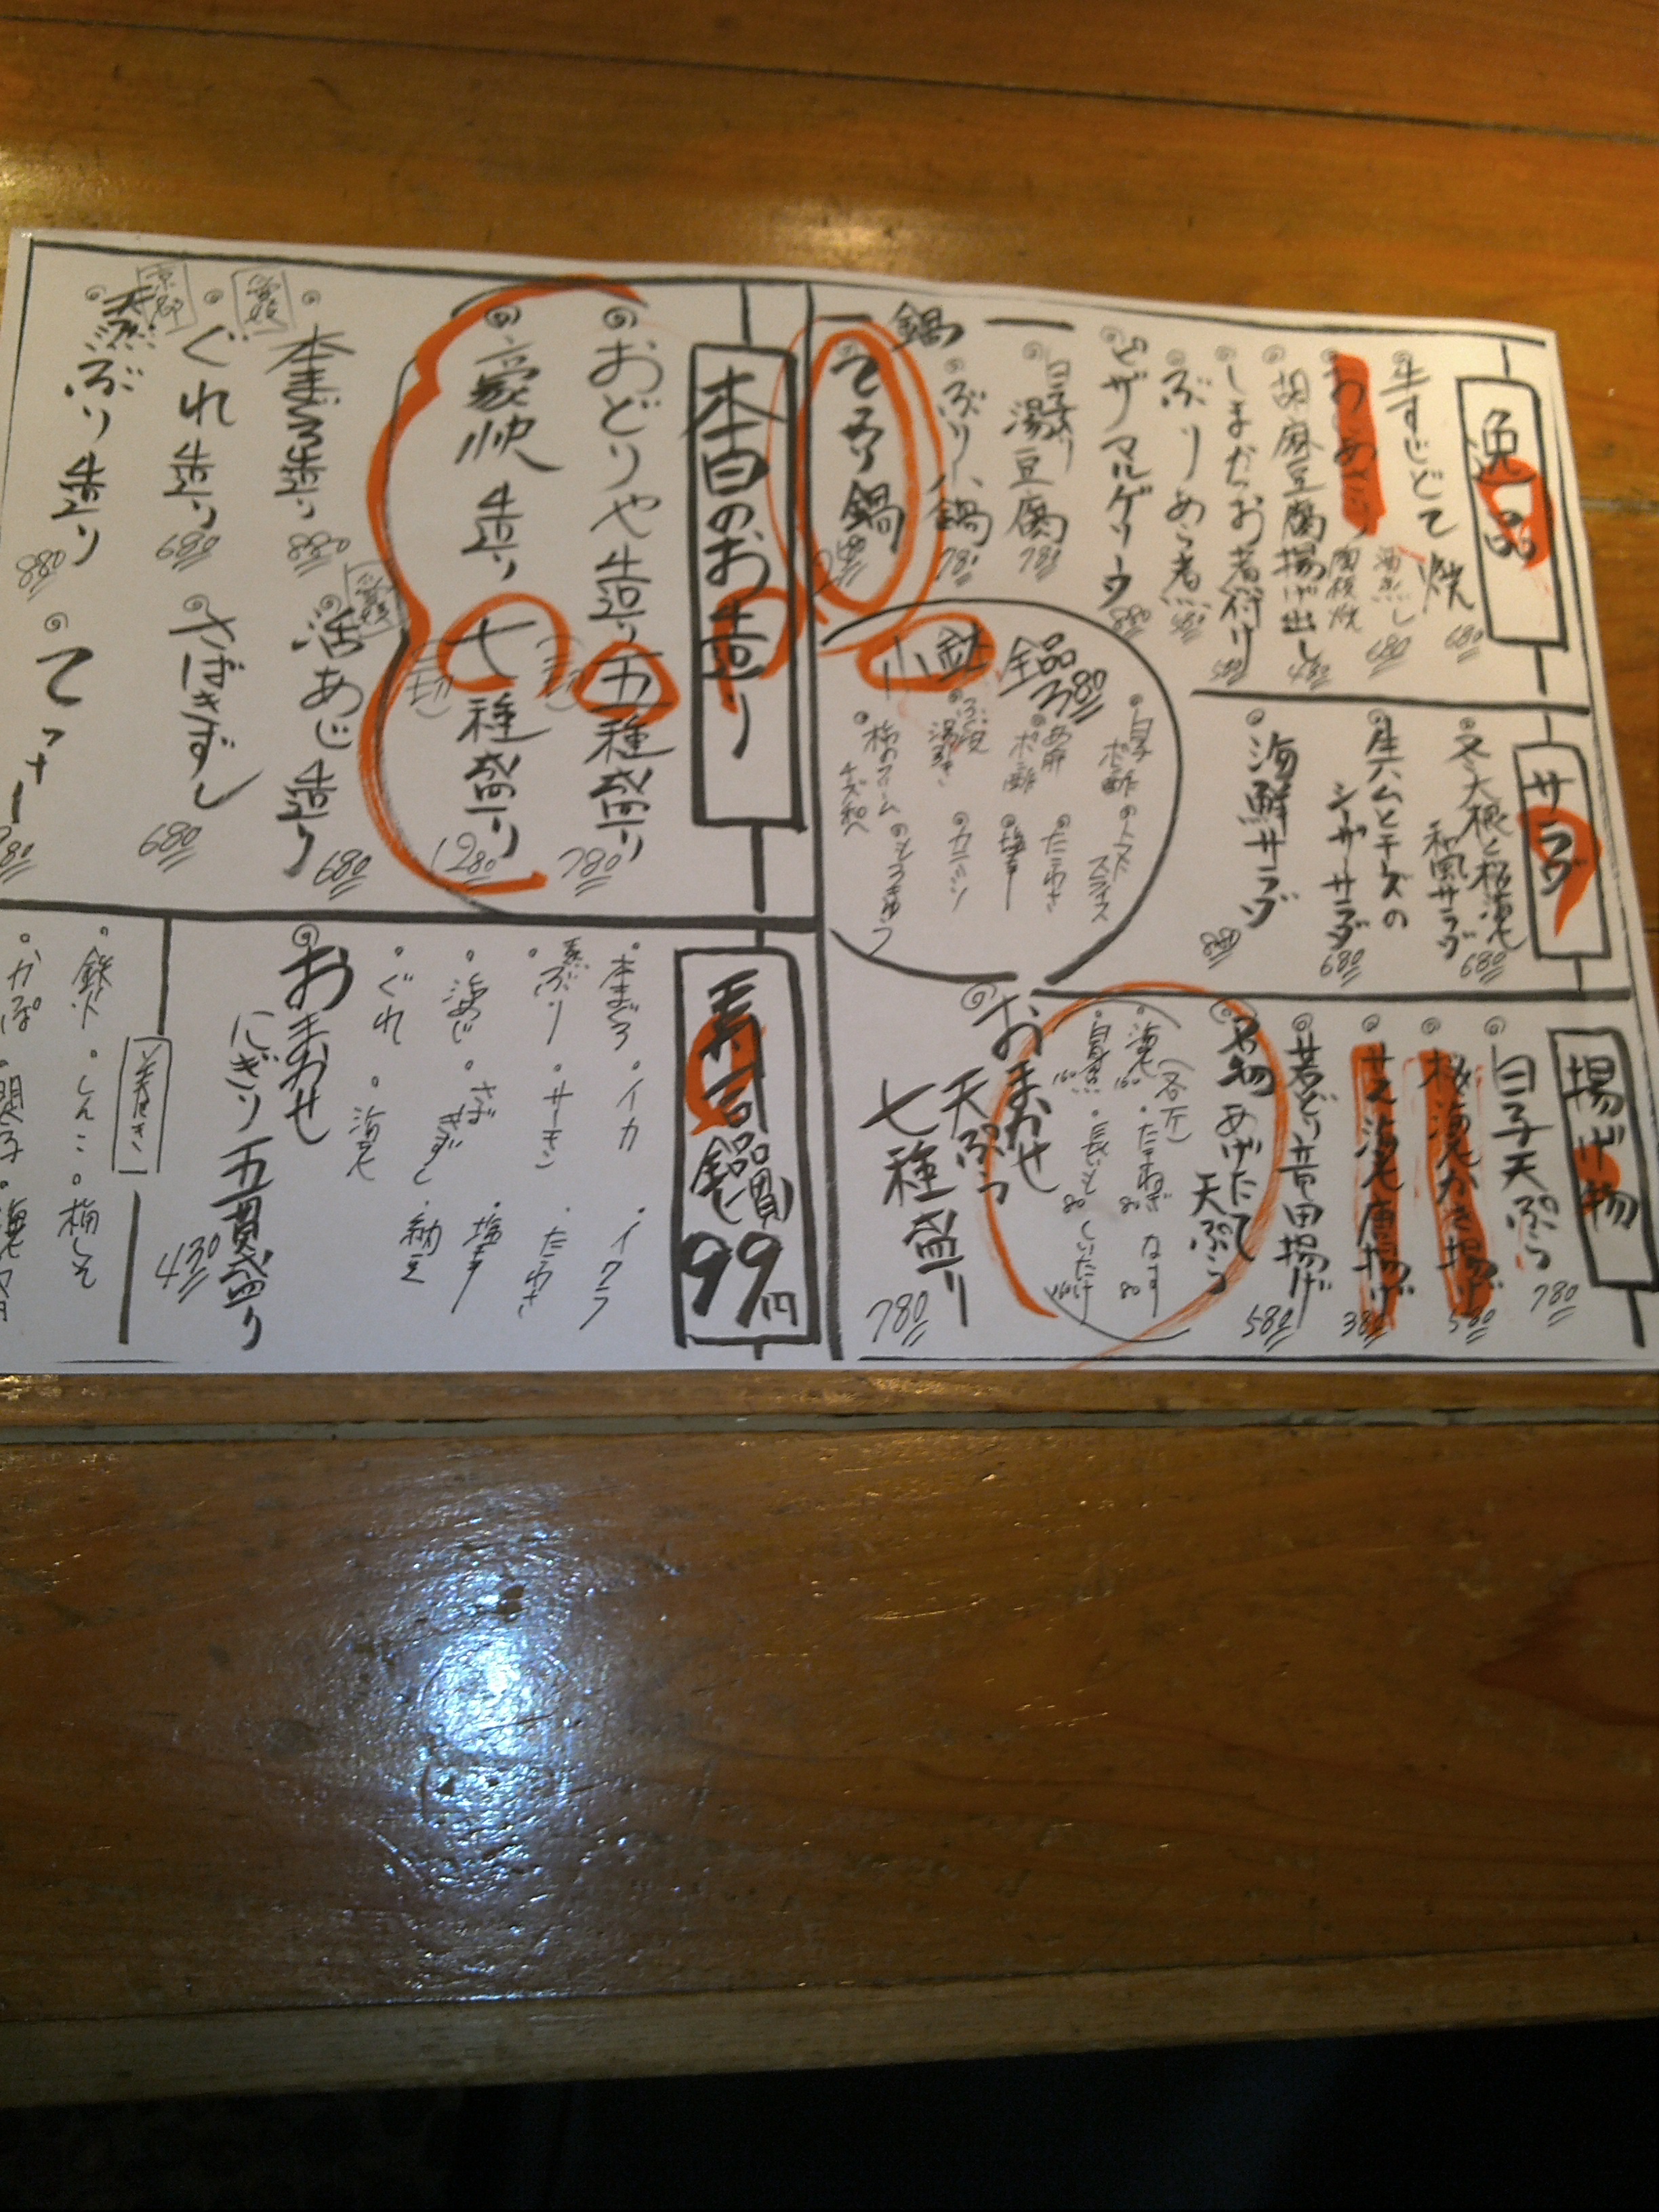 逸品
牛すじどて焼
680
酒蒸し
陶板焼
680
胡麻豆腐揚げ出し
しまだこお煮付け
ぶりあら煮
480
ピザマルゲリータ
880
鍋
白子入り
湯豆腐
780
ぶり小鍋
780
てっちり鍋
小鉢
全品380
白子ポン酢
トマトスライス
あん肝ポン酢
たこわさ
塩辛
湯引き
ガリトマト
梅クリームチーズ和え
サラダ
冬大根と桜海老
和風サラダ
680
生ハムとチーズの
シーザーサラダ
680
海鮮サラダ
880
揚げ物
白子天ぷら
780
桜海老かき揚げ
580
川海老唐揚げ
380
若どり竜田揚げ
580
名物あげたて
天ぷら
海老
160
たまねぎ
80
なす
80
白身魚
160
長いも
80
しいたけ
おまかせ
天ぷら
七種盛り
780
本日のお造り
おどりや造り五種盛り
780
豪快造り七種盛り
1280
本まぐろ造り
880
愛媛
活あじ造り
680
愛媛
ぐれ造り
680
きずし
680
京都
天然ぶり造り
880
てっさ
寿司
全品一貫
99円
本まぐろ
イカ
イクラ
天然ぶり
サーモン
たこわさ
活あじ
さばきずし
塩辛
ぐれ
海老
納豆
おまかせ
にぎり五貫盛り
430
巻き
鉄火
しんこ
梅しそ
かっぱ